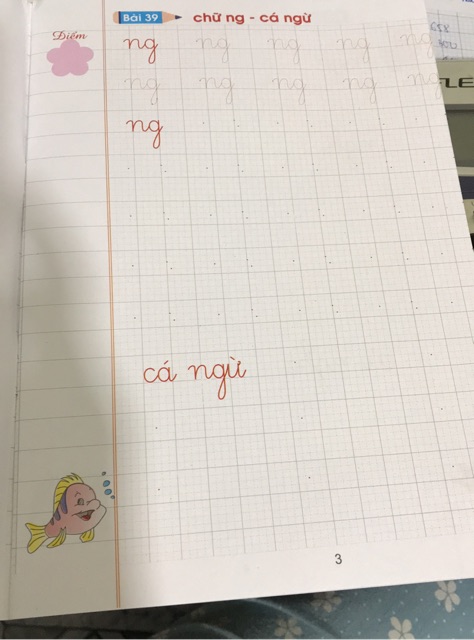 Bài 39 chữ ng - cá ngừ
Điểm
ng ng ng ng ng
ng ng ng ng ng
ng
cá ngừ
3